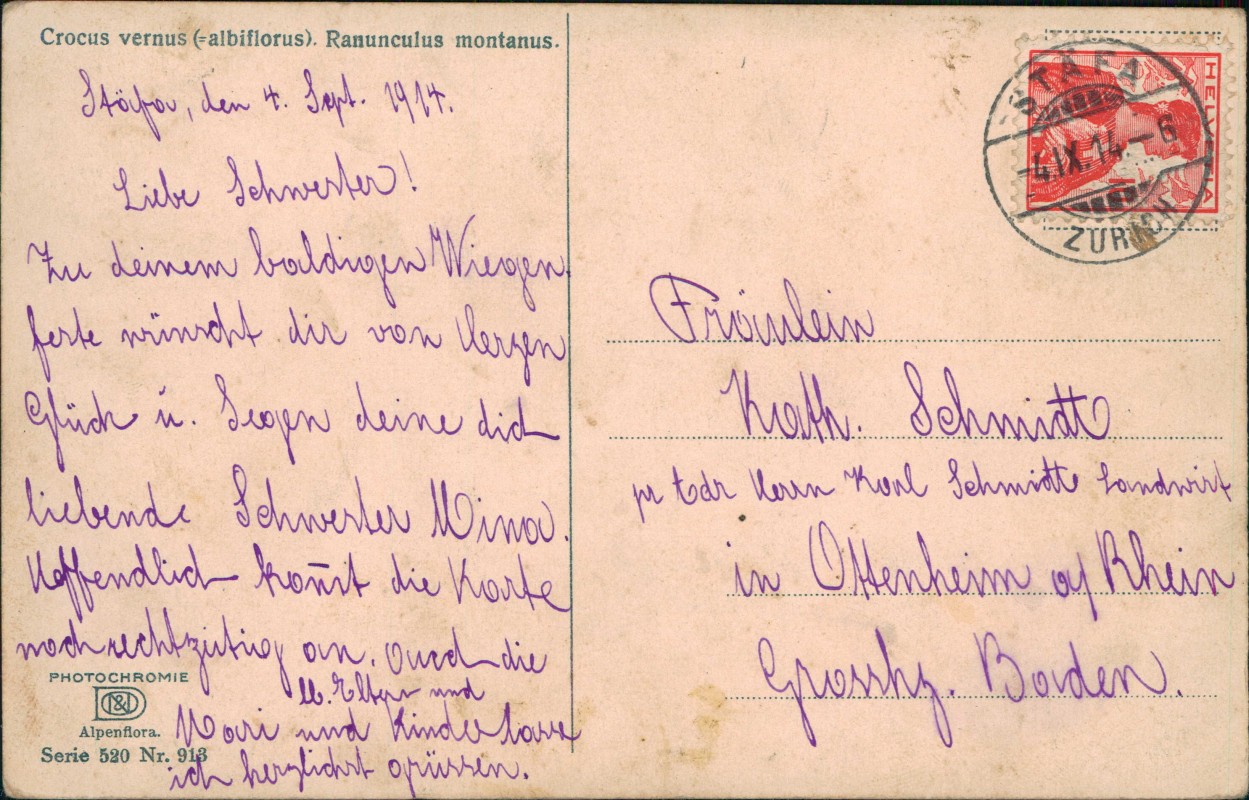 Crocus vernus (=albiflorus). Ranunculus montanus.
Stäfa, den 4. Sept. 1914.
Liebe Schwester!
Zu deinem baldigen Wiegen
feste wünscht dir von Herzen
Glück u. Segen deine dich
liebende Schwester Mina.
Hoffendlich kom̄t die Karte
noch rechtzeitig an. Auch die
lb. Eltern und
Mari und Kinder lasse
ich herzlichst grüssen.
PHOTOCHROMIE
D&N
Alpenflora.
Serie 520 Nr. 913
STÄFA
-4.IX.14-6
ZÜRICH
HELVETIA
Fräulein
Kath. Schmidt
pr Adr Herrn Karl Schmidt Landwirt
in Ottenheim a/ Rhein
Grosshz. Baden.